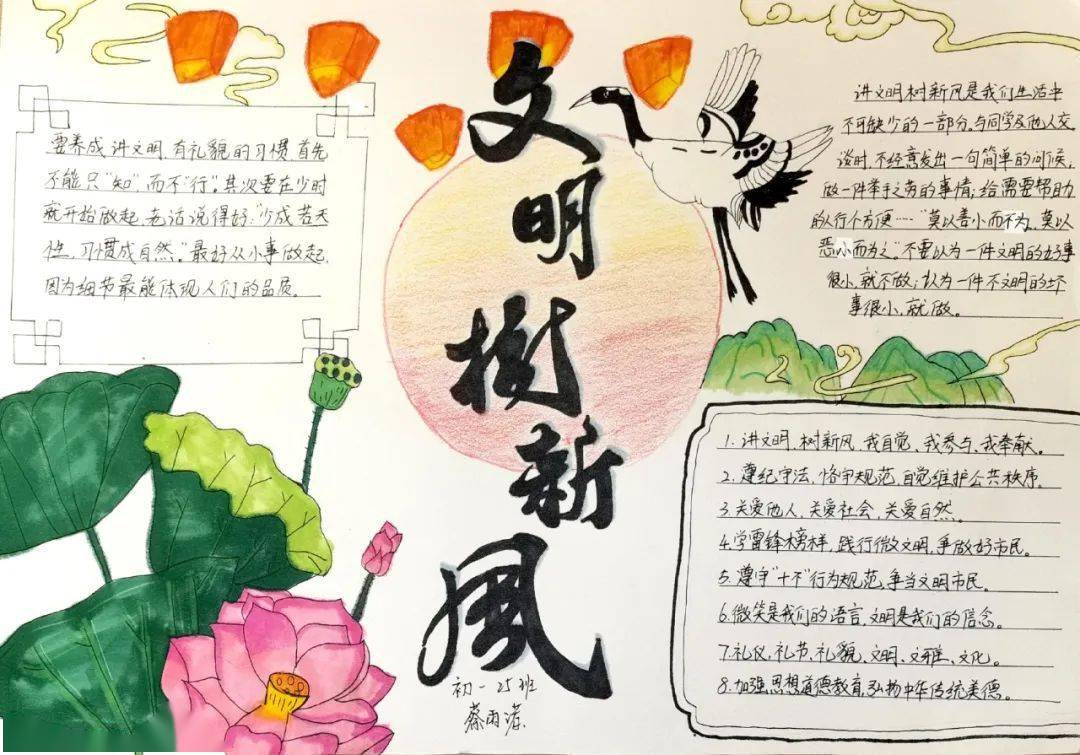 文明树新风
要养成讲文明,有礼貌的习惯,首先
不能只"知"而不"行"。其次要在少时
就开始做起,老话说得好:"少成若天
性,习惯成自然"最好从小事做起,
因为细节最能体现人们的品质。
讲文明树新风是我们生活中
不可缺少的一部分。与同学及他人交
谈时,不经意发出一句简单的问候,
做一件举手之劳的事情;给需要帮助
的人行个方便……"莫以善小而不为,莫以
恶小而为之"不要以为一件文明的好事
很小,就不做;认为一件不文明的坏
事很小,就做。
1.讲文明,树新风,我自觉、我参与、我奉献。
2.遵纪守法,恪守规范,自觉维护公共秩序。
3.关爱他人,关爱社会,关爱自然。
4.学雷锋榜样,践行微文明,争做好市民。
5.遵守"十不"行为规范,争当文明市民。
6.微笑是我们的语言,文明是我们的信念。
7.礼仪、礼节、礼貌、文明、文雅、文化。
8.加强思想道德教育,弘扬中华传统美德。
初一25班
蔡雨